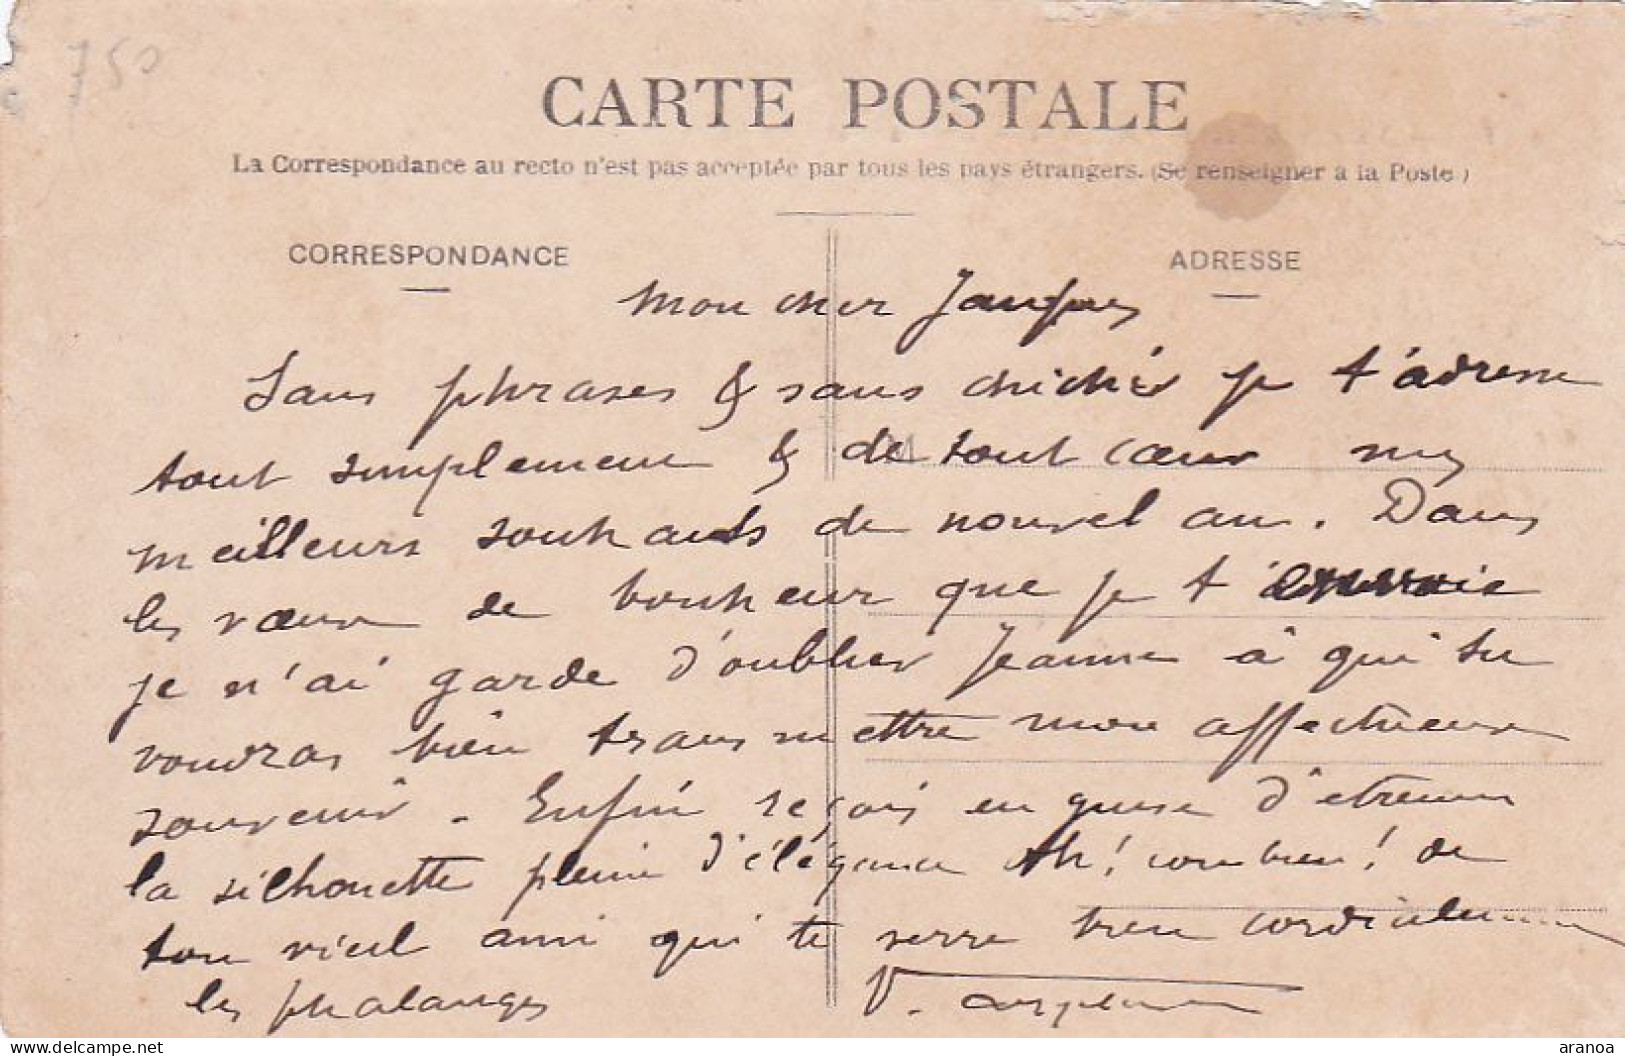 750
CARTE POSTALE
La Correspondance au recto n'est pas acceptée par tous les pays étrangers. (Se renseigner à la Poste)
CORRESPONDANCE
ADRESSE
Mon cher Jacques
Sans phrases & sans chichis je t'adresse
tout simplement & de tout cœur mes
meilleurs souhaits de nouvel an. Dans
les vœux de bonheur que je t'envoie
je n'ai garde d'oublier Jeanne à qui tu
voudras bien transmettre mon affectueux
souvenir. Enfin reçois en guise d'étrennes
la silhouette pleine d'élégance Ah! combien! de
ton vieil ami qui te serre bien cordialement
les phalanges
V.
delcampe.net
aranoa